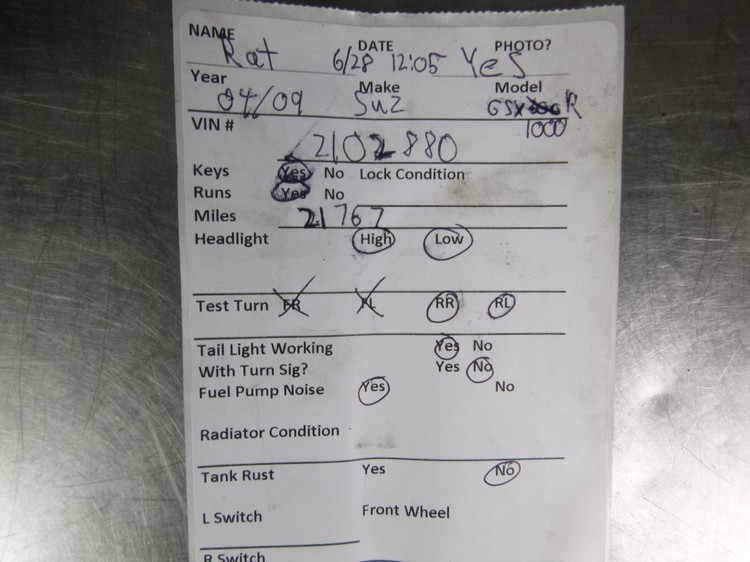 NAME Rat DATE 6/28 12:05 PHOTO? Yes
Year 04/09 Make Suz Model GSX R
1000
VIN # 2102880
Keys Yes No Lock Condition
Runs Yes No
Miles 21767
Headlight High Low
Test Turn FR FL RR RL
Tail Light Working Yes No
With Turn Sig? Yes No
Fuel Pump Noise Yes No
Radiator Condition
Tank Rust Yes No
L Switch Front Wheel
R Switch